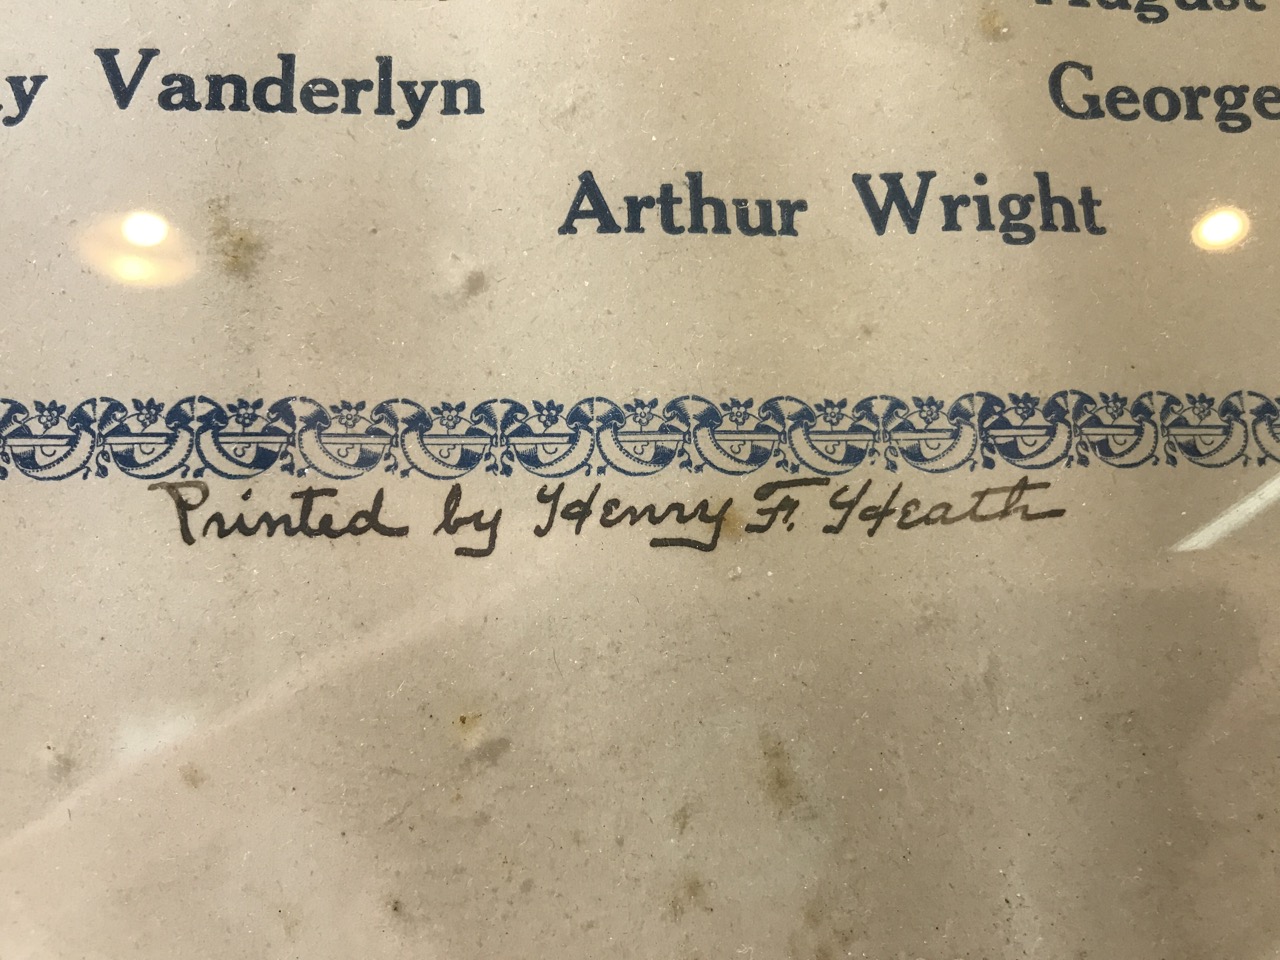 August
y Vanderlyn
George
Arthur Wright
Printed by Henry F. Heath